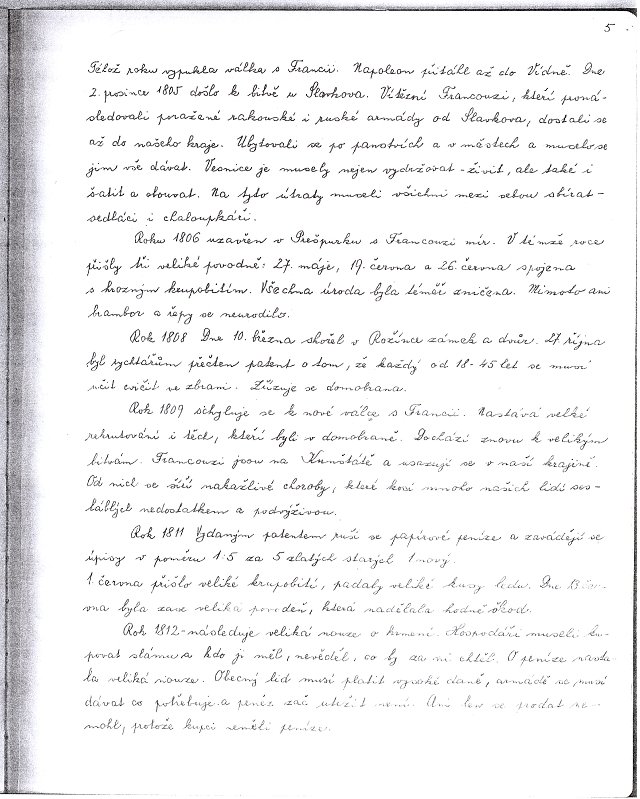 5
Téhož roku vypukla válka s Francií. Napoleon přitáhl až do Vídně. Dne
2. prosince 1805 došlo k bitvě u Slavkova. Vítězní Francouzi, kteří proná-
sledovali poražené rakouské i ruské armády od Slavkova, dostali se
až do našeho kraje. Ubytovali se po panstvích a v městech a muselo se
jim vše dávat. Vesnice je musely nejen vydržovat - živit, ale také i
šatit a obouvat. Na tyto útraty museli všichni mezi sebou sbírat -
sedláci i chaloupkáři.
Roku 1806 uzavřen v Prešpurku s Francouzi mír. V témže roce
přišly tři veliké povodně: 27. máje, 19. června a 26. června spojena
s hrozným krupobitím. Všechna úroda byla téměř zničena. Mimoto ani
brambor a řepy se neurodilo.
Rok 1808 Dne 10. března shořel v Rožínce zámek a dvůr. 27 října
byl rychtářům přečten patent o tom, že každý od 18-45 let se musí
učit cvičit ve zbrani. Zřizuje se domobrana.
Rok 1809 schyluje se k nové válce s Francií. Nastává velké
rekrutování i těch, kteří byli v domobraně. Dochází znovu k velikým
bitvám. Francouzi jsou na Kunštátě a usazují se v naší krajině.
Od nich se šíří nakažlivé choroby, které kosí mnoho našich lidí ses-
láblých nedostatkem a podvýživou.
Rok 1811 Vydaným patentem ruší se papírové peníze a zavádějí se
úpisy v poměru 1:5 za 5 zlatých starých 1 nový.
1. června přišlo veliké krupobití, padaly veliké kusy ledu. Dne 13 čer-
vna byla zase veliká povodeň, která nadělala hodně škod.
Rok 1812 - následuje veliká nouze o krmení. Hospodáři museli ku-
povat slámu a kdo ji měl, nevěděl, co by za ni chtěl. O peníze nasta-
la veliká nouze. Obecný lid musí platit vysoké daně, armádě se musí
dávat co potřebuje a peněz zač utržit není. Ani len se prodat ne-
mohl, protože kupci neměli peníze.